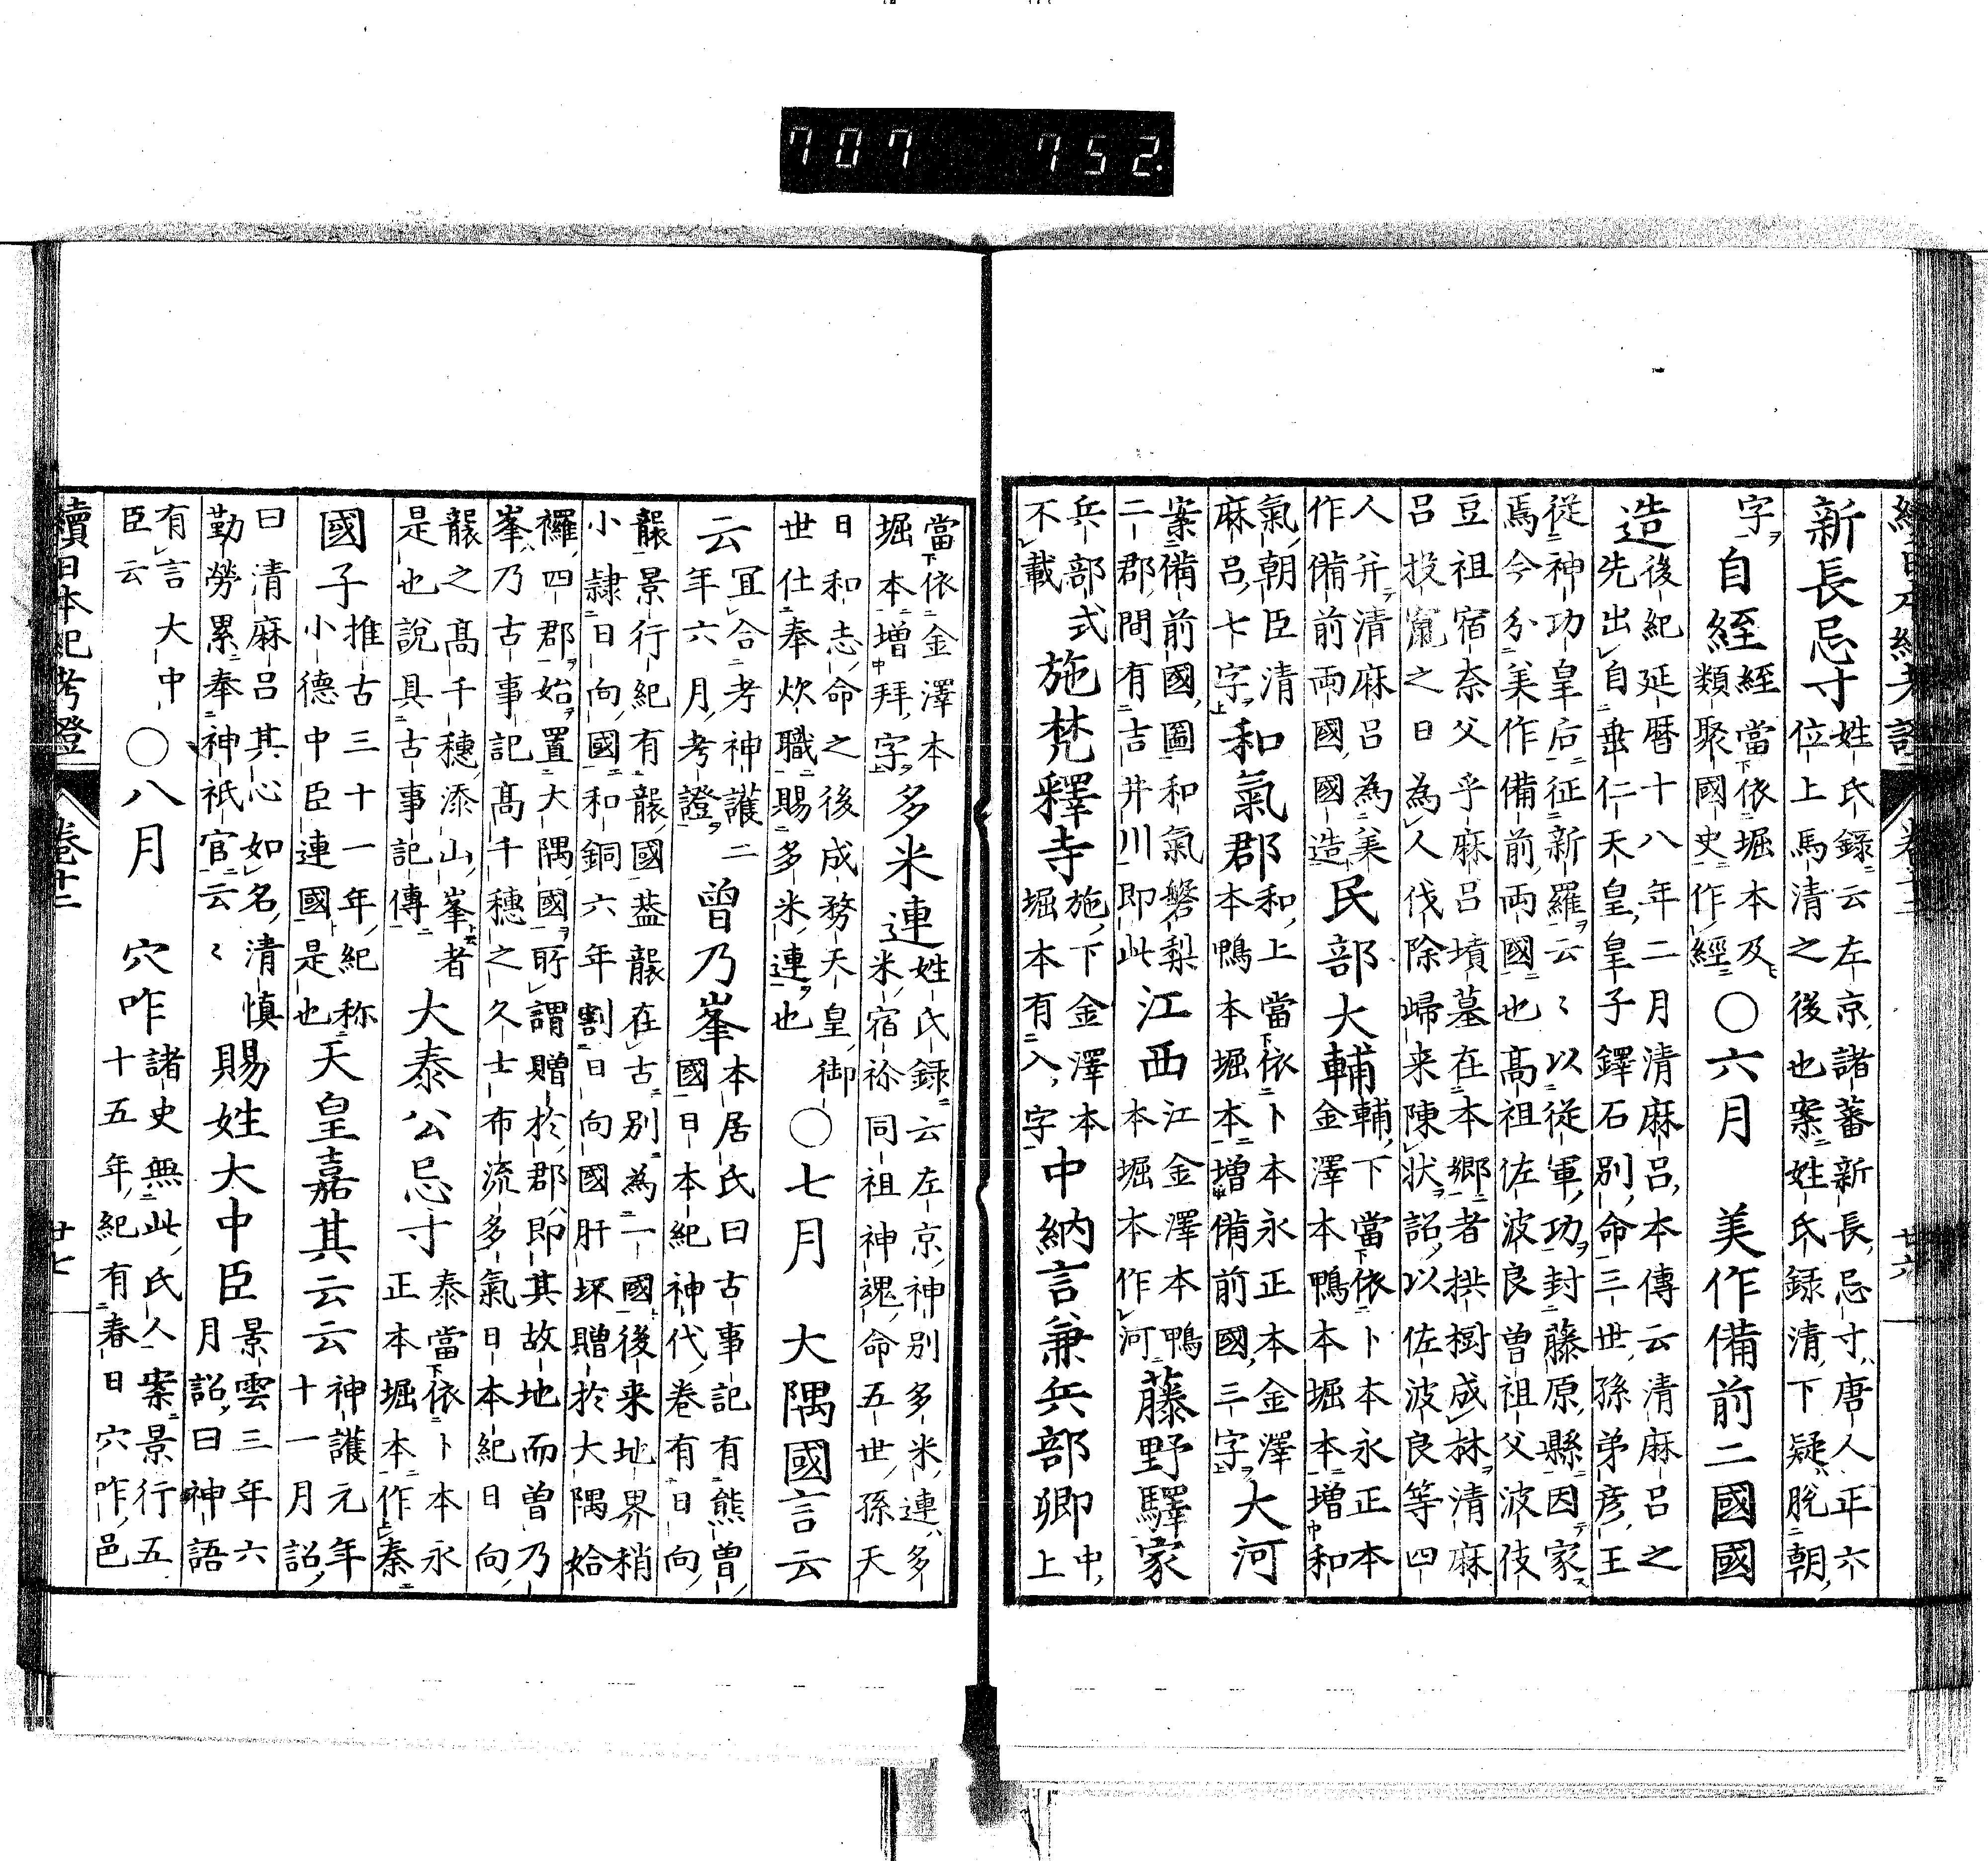 707 752.
續日本紀考證 卷十二 廿六
新長忌寸 姓氏録云左京諸蕃新長忌寸唐人正六
位上馬清之後也案姓氏録清下疑脱朝
字 自經 經當依堀本及
類聚國史作經 〇六月 美作備前二國國
造 後紀延暦十八年二月清麻呂本傳云清麻呂之
先出自垂仁天皇皇子鐸石別命三世孫弟彦王
従神功皇后征新羅云〻以従軍功封藤原縣因家
焉今分美作備前両國也高祖佐波良曾祖父波伎
豆祖宿奈父乎麻呂墳墓在本郷者拱樹成林清麻
呂投竄之日為人伐除歸来陳状詔以佐波良等四
人并清麻呂為美
作備前両國國造 民部大輔 輔下當依卜本永正本
金澤本鴨本堀本増和
氣朝臣清
麻呂七字 和氣郡 和上當依卜本永正本金澤
本鴨本堀本増備前國三字 大河
案備前國圖和氣磐梨
二郡間有吉井川即此 江西 江金澤本鴨
本堀本作河 藤野驛家
兵部式
不載 施梵釋寺 施下金澤本
堀本有入字 中納言兼兵部卿 中上
當依金澤本
堀本増拜字 多米連 姓氏録云左京神別多米連多
米宿祢同祖神魂命五世孫天
日和志命之後成務天皇御
世仕奉炊職賜多米連也 〇七月 大隅國言云
云 冝合考神護二
年六月考證 曽乃峯 本居氏曰古事記有熊曽
國日本紀神代卷有日向
襲景行紀有襲國盖襲在古別為一國後来地界稍
小隷日向國和銅六年割日向國肝坏贈於大隅姶
䙓四郡始置大隅國所謂贈於郡即其故地而曽乃
峯乃古事記髙千穂之久士布流多氣日本紀日向
襲之髙千穂添山峯者
是也説具古事記傳 大泰公忌寸 泰當依卜本永
正本堀本作秦
國子 推古三十一年紀称
小德中臣連國是也 天皇嘉其云云 神護元年
十一月詔
曰清麻呂其心如名清慎
勤勞累奉神祇官云〻 賜姓大中臣 景雲三年六
月詔曰神語
有言大中
臣云 〇八月 穴咋 諸史無此氏人案景行五
十五年紀有春日穴咋邑
續日本紀考證 卷十二 廿七